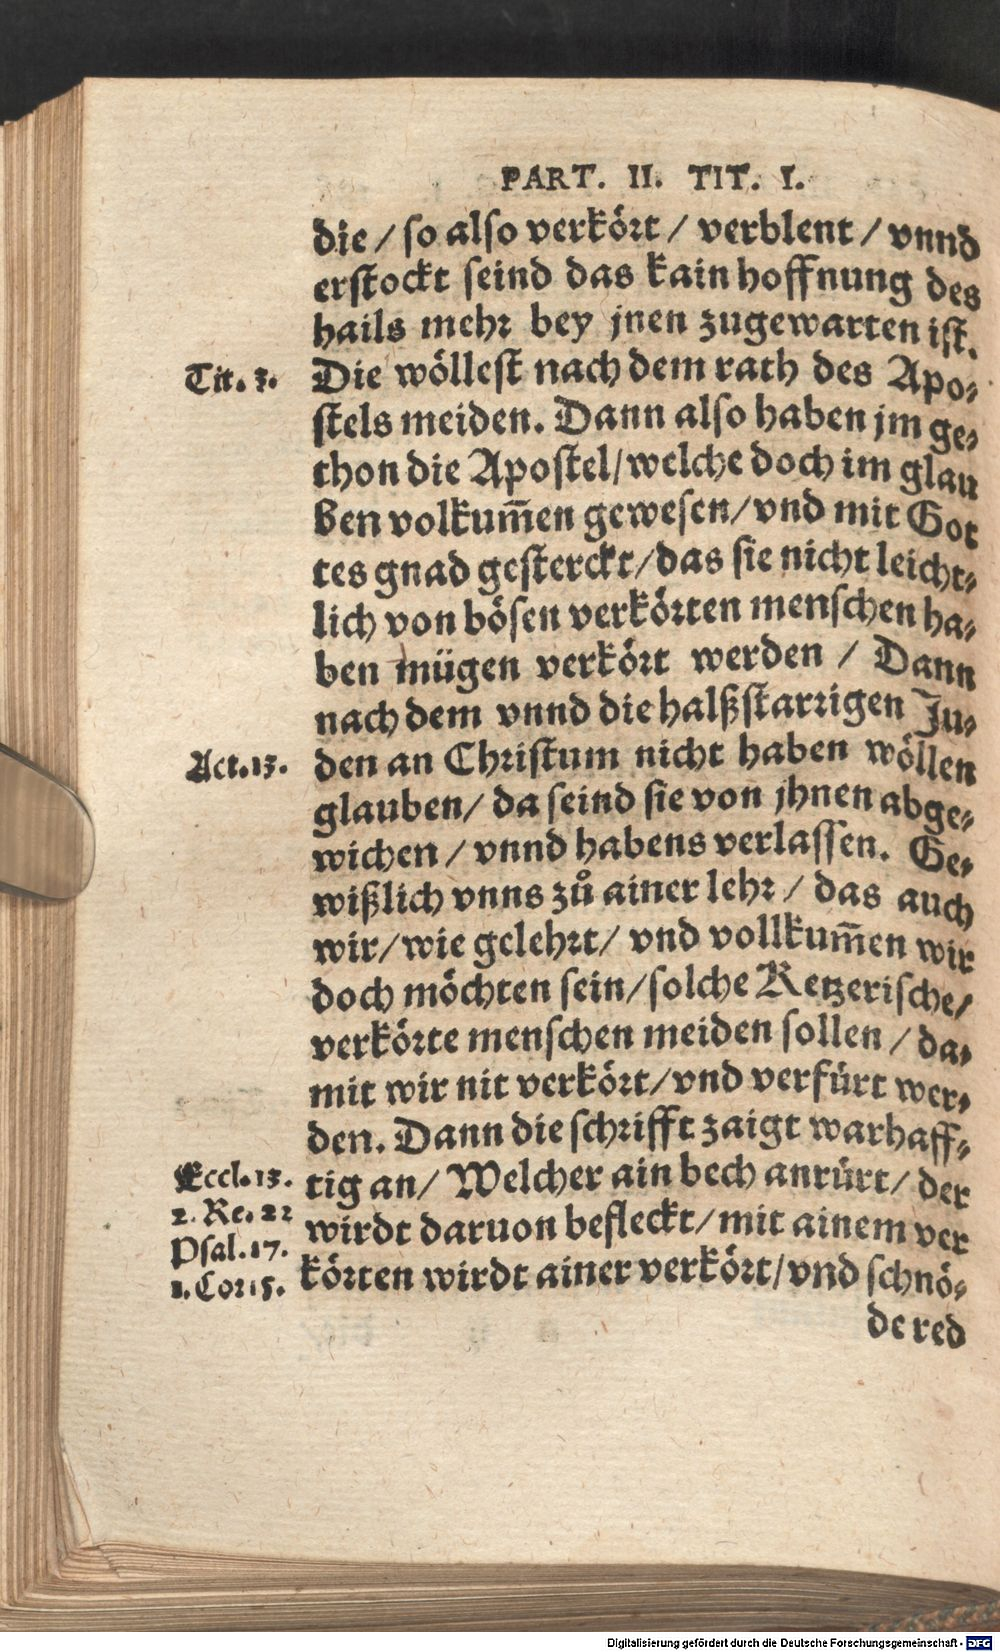 PART. II. TIT. I.
die / so also verkört / verblent / vnnd
erstockt seind das kain hoffnung des
hails mehr bey jnen zugewarten ist.
Tit. 3.
Die wöllest nach dem rath des Apo-
stels meiden. Dann also haben jm ge-
thon die Apostel/welche doch im glau
ben volkum̃en gewesen/vnd mit Got
tes gnad gesterckt/das sie nicht leicht-
lich von bösen verkörten menschen ha-
ben mügen verkört werden / Dann
nach dem vnnd die halßstarrigen Ju-
Act.13.
den an Christum nicht haben wöllen
glauben/ da seind sie von jhnen abge-
wichen / vnnd habens verlassen. Ge-
wißlich vnns zů ainer lehr / das auch
wir/wie gelehrt/ vnd vollkum̃en wir
doch möchten sein/solche Ketzerische/
verkörte menschen meiden sollen / da-
mit wir nit verkört/vnd verfürt wer-
den. Dann die schrifft zaigt warhaff-
Eccl.13.
tig an/ Welcher ain bech anrürt/ der
2. Re. 22
wirdt daruon befleckt/mit ainem ver
Psal.17.
körten wirdt ainer verkört/vnd schnö-
1.Cor15.
de red
Digitalisierung gefördert durch die Deutsche Forschungsgemeinschaft - DFG